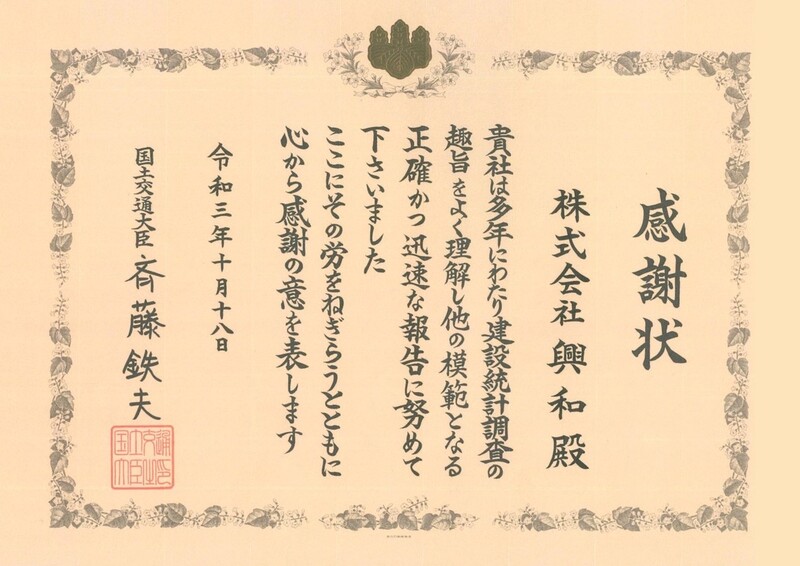 感謝状
株式会社興和殿
貴社は多年にわたり建設統計調査の
趣旨をよく理解し他の模範となる
正確かつ迅速な報告に努めて
下さいました
ここにその労をねぎらうとともに
心から感謝の意を表します
令和三年十月十八日
国土交通大臣 斉藤鉄夫
国土交通大臣之印